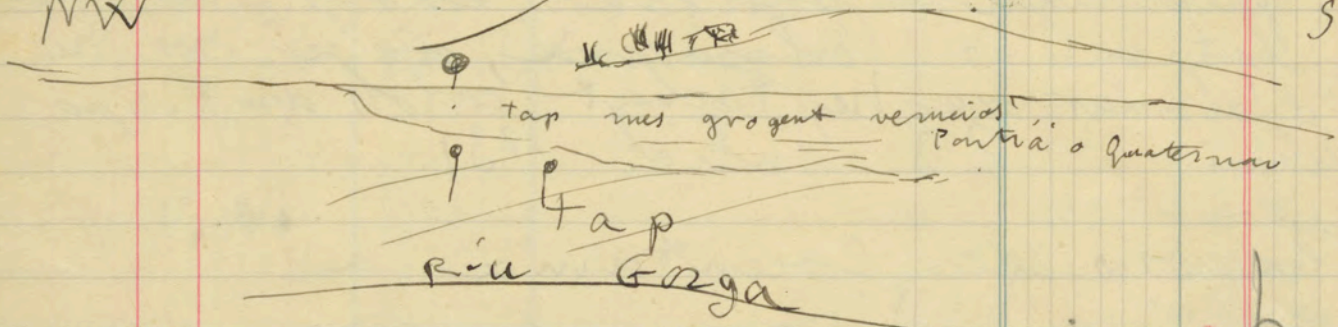 NW S
tap mes grogent vermeiós
Pontiá o Quaternar
tap
Riu Gorga